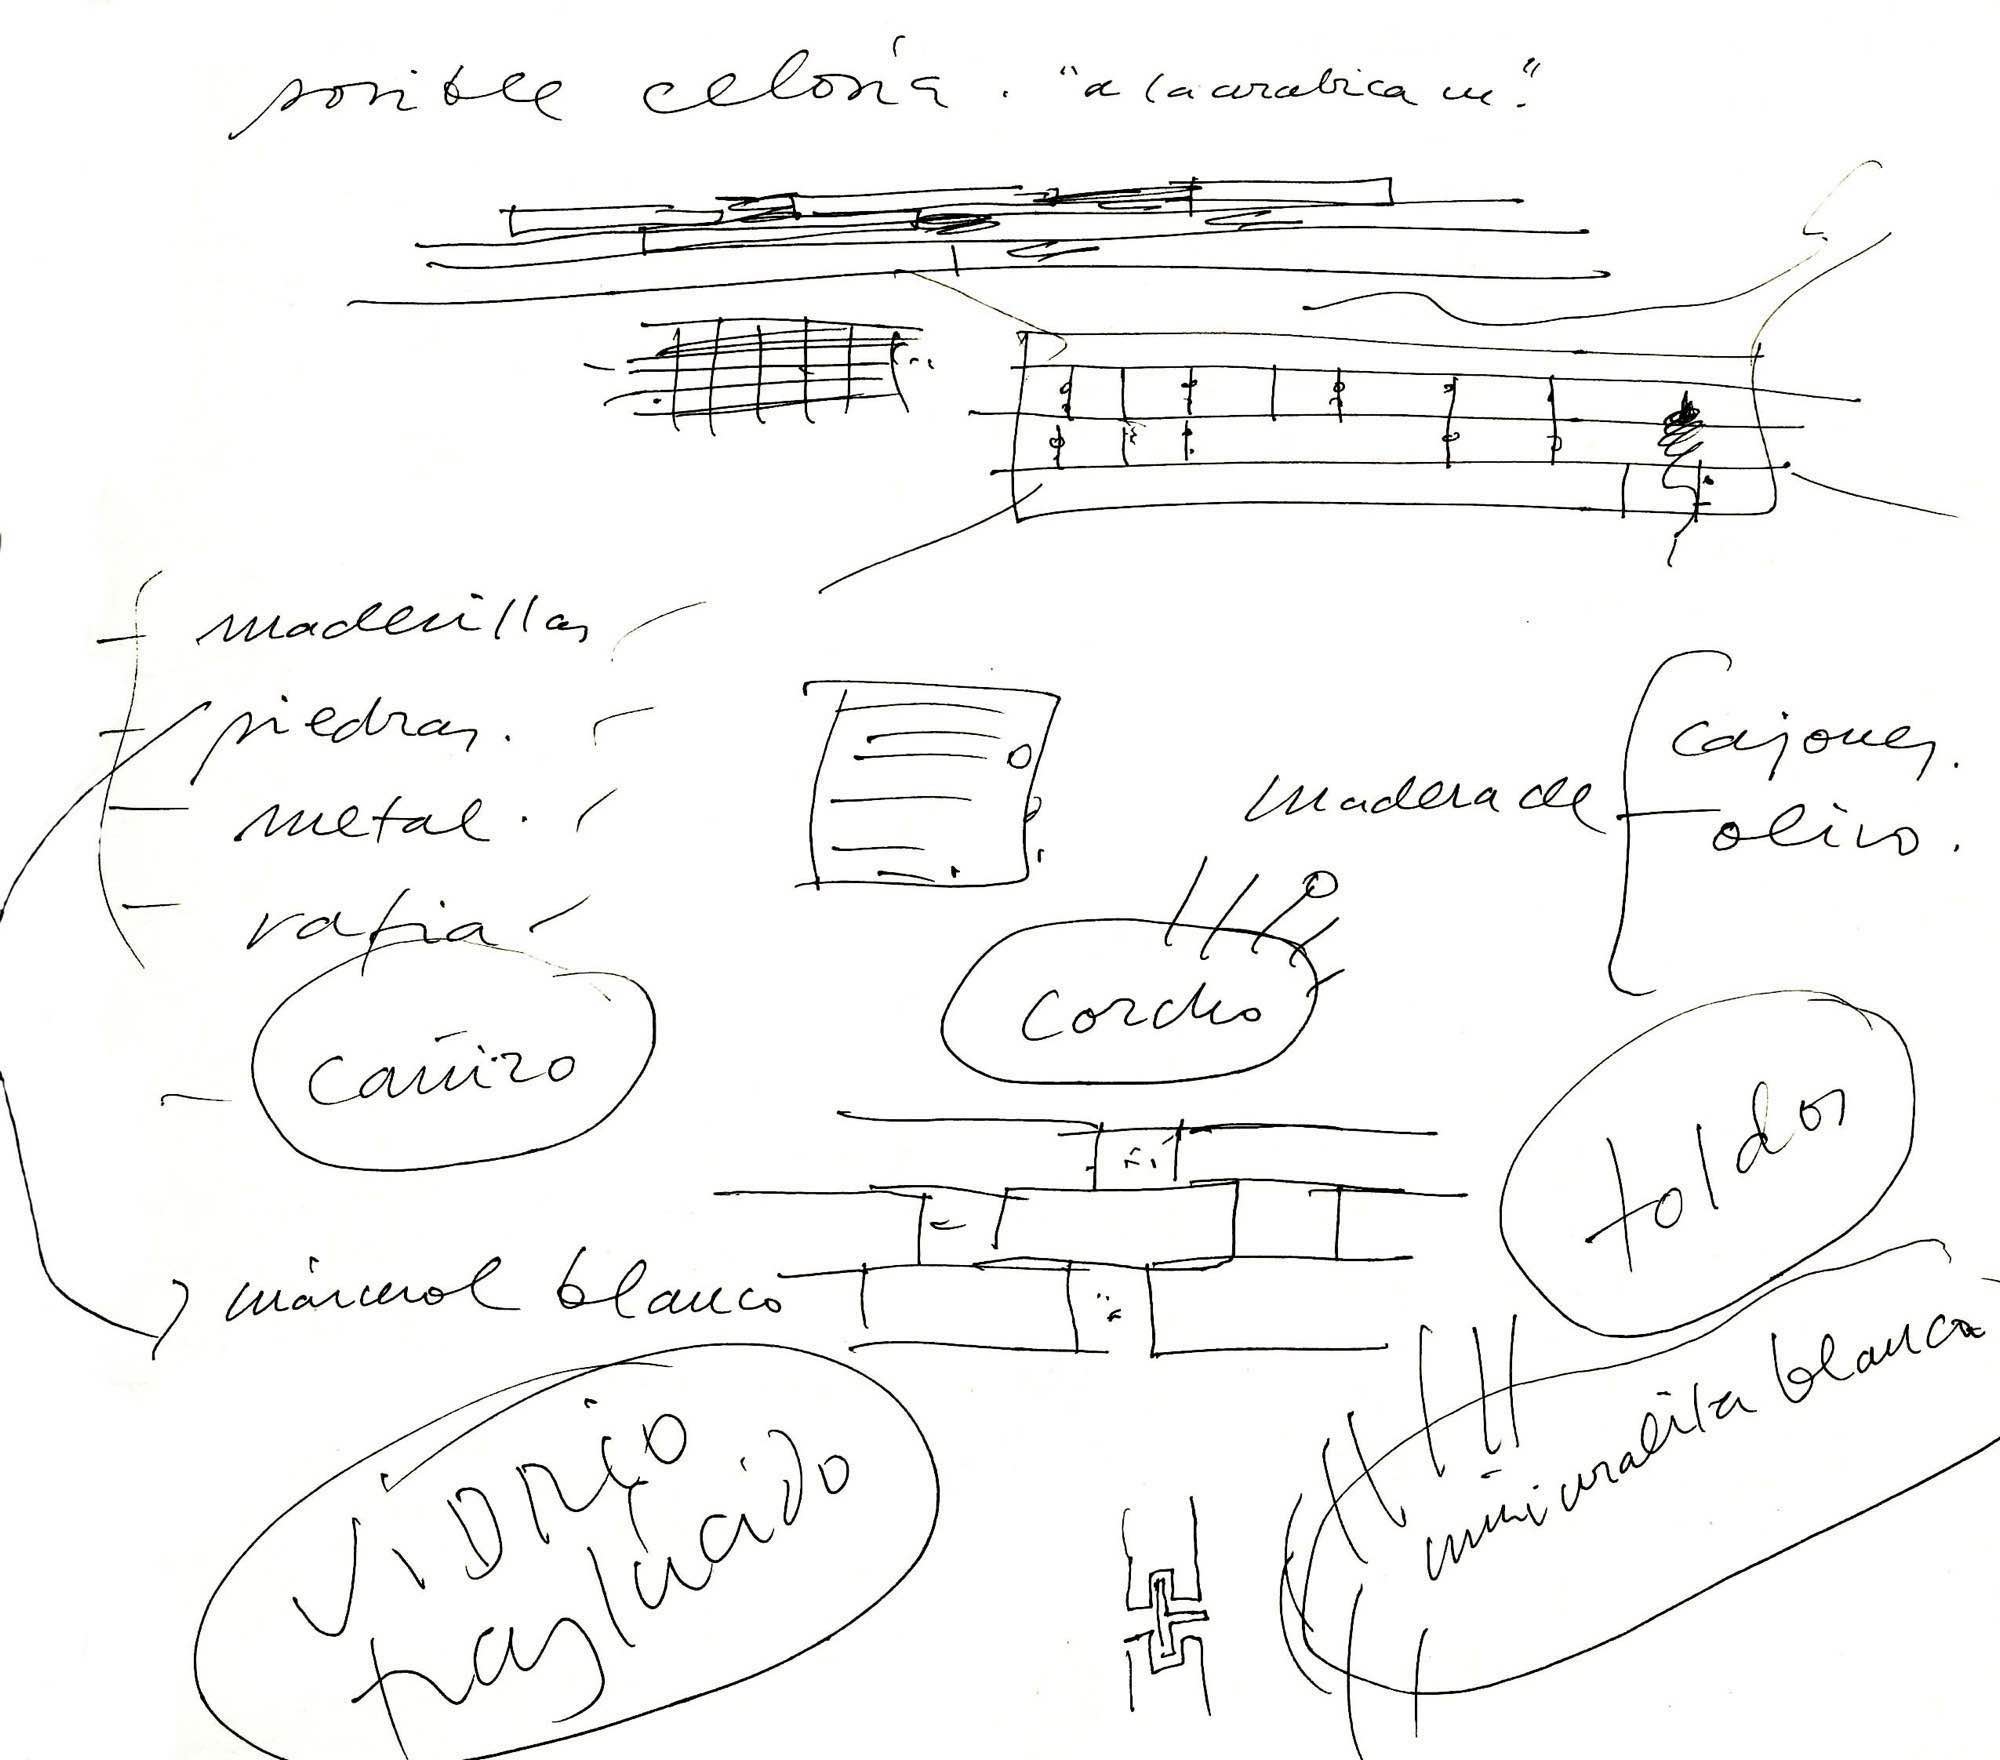 posible celosía. "a la arabica m."
maderillas
piedras.
metal.
rafia
cañizo
madera de
cajones.
olivo.
corcho
toldos
mármol blanco
VIDRIO
traslúcido
miniuralita blanca